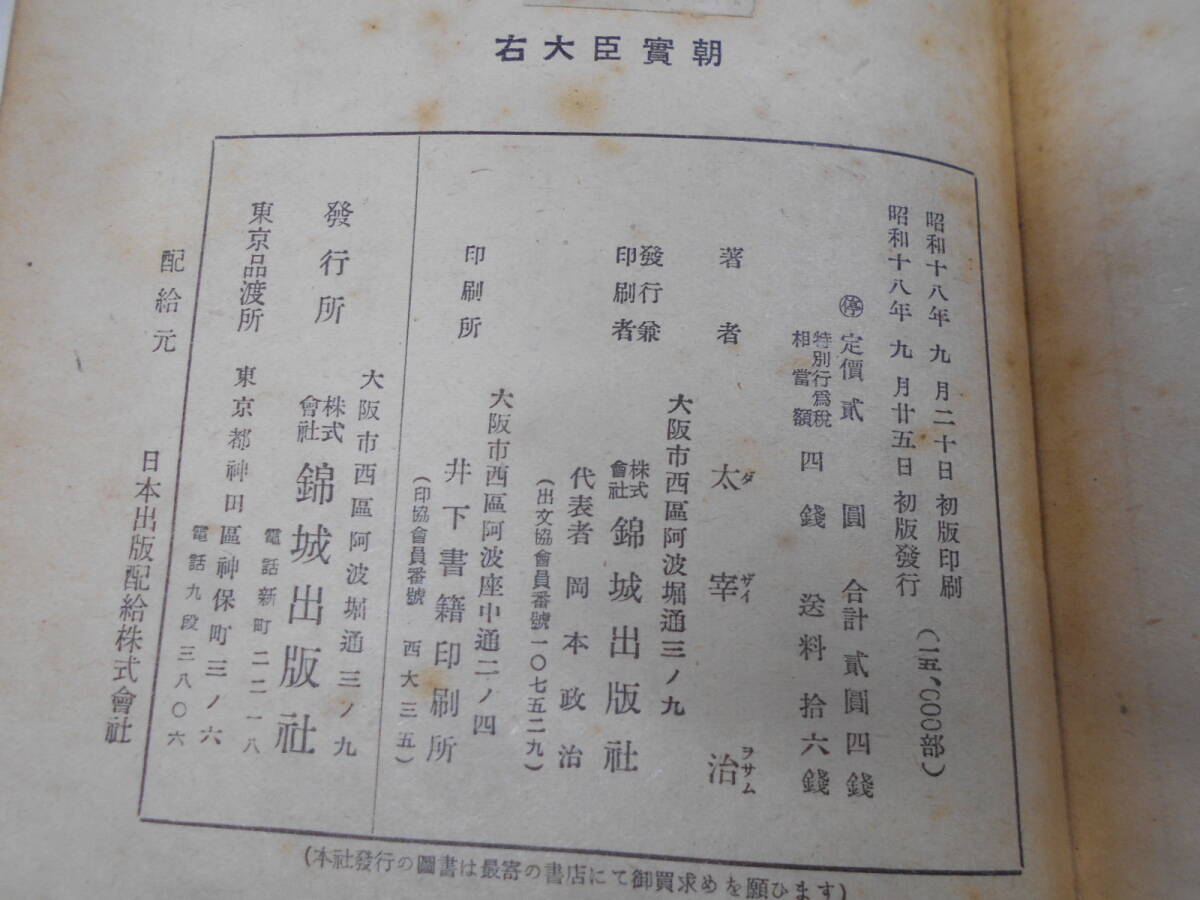 右大臣實朝
昭和十八年九月二十日初版印刷
(一五、〇〇〇部)
昭和十八年九月廿五日初版發行
㊡定價貳圓 合計貳圓四錢
特別行爲税相當額四錢 送料拾六錢
著者 太宰治
ダザイヲサム
大阪市西區阿波堀通三ノ九
發行兼印刷者 株式會社錦城出版社
代表者 岡本政治
(出文協會員番號一〇七五二九)
大阪市西區阿波座中通二ノ四
印刷所 井下書籍印刷所
(印協會員番號 西大三五)
大阪市西區阿波堀通三ノ九
發行所 株式會社錦城出版社
電話新町二二一八
東京品渡所 東京都神田區神保町三ノ六
電話九段三八〇六
配給元 日本出版配給株式會社
(本社發行の圖書は最寄の書店にて御買求めを願ひます)